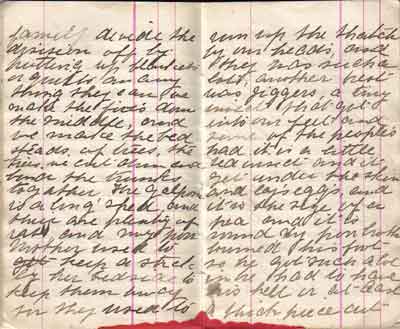 family divide the
division off by
putting up blankets
or quilts or any
thing they can we
make the fires down
the middle, and
we make the bed
steads of trees, the
trees we cut down and
bind the trunks
together the galpon
is a long shed and
there are plenty of
rats and my
Mother used to
keep a stick
by her bedside to
keep them away
for they used to
run up the thatch
by our heads, and
they was such a
lot, another pest
was jiggers, a tiny
insect that got
into our feet and
some of the people's
had it is a little
red insect and it
get under the skin
and lays eggs, and
it is the size of a
pea and it is
round
burned his foot
as he got such a lot
in he had to have
his heel or at least
a thick piece cut